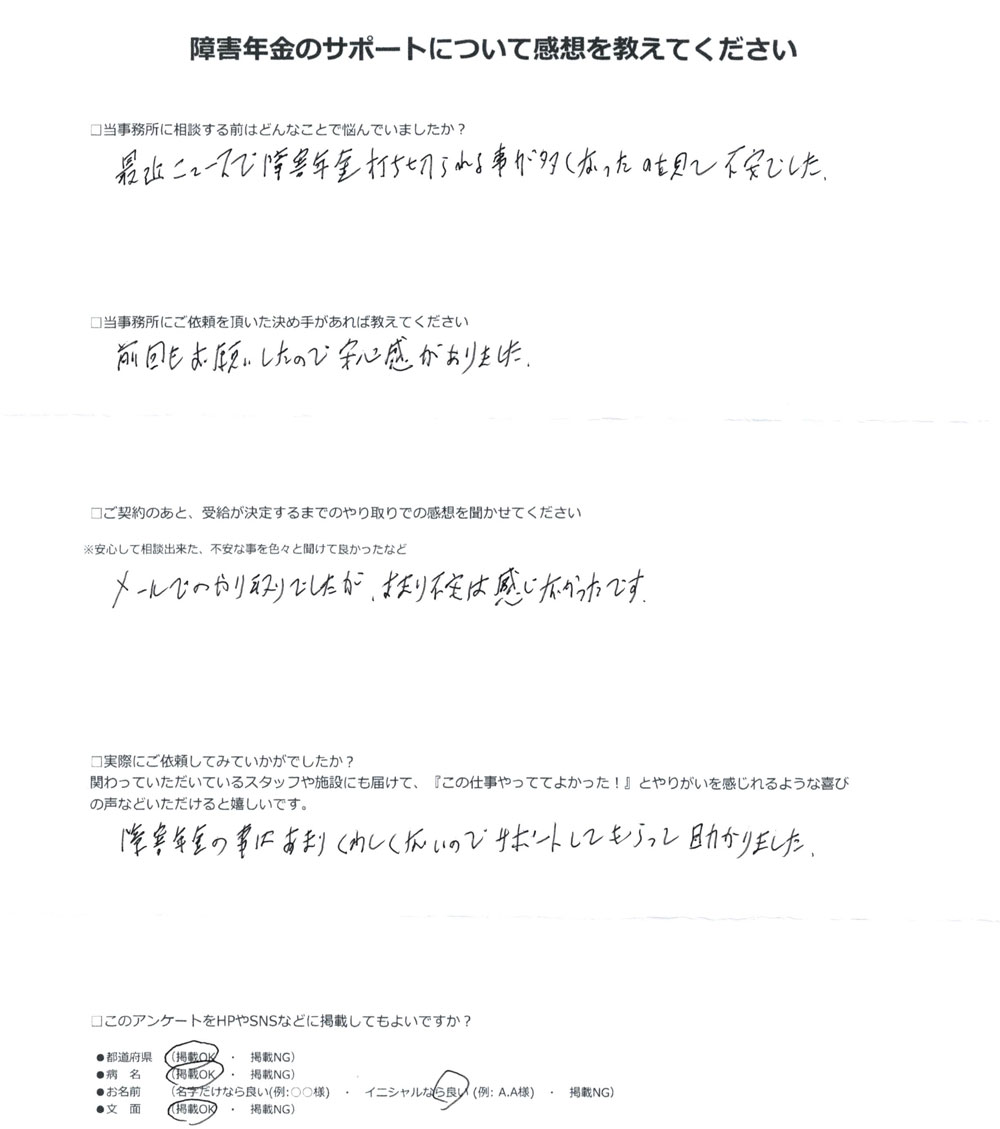 障害年金のサポートについて感想を教えてください
□当事務所に相談する前はどんなことで悩んでいましたか？
最近ニュースで障害年金打ち切られる事が多くなったのを見て不安でした.
□当事務所にご依頼を頂いた決め手があれば教えてください
前回もお願いしたので安心感がありました.
□ご契約のあと、受給が決定するまでのやり取りでの感想を聞かせてください
※安心して相談出来た、不安な事を色々と聞けて良かったなど
メールでのやり取りでしたが、あまり不安は感じなかったです.
□実際にご依頼してみていかがでしたか？
関わっていただいているスタッフや施設にも届けて、『この仕事やっててよかった！』とやりがいを感じれるような喜び
の声などいただけると嬉しいです。
障害年金の事はあまりくわしくないのでサポートしてもらって助かりました.
□このアンケートをHPやSNSなどに掲載してもよいですか？
●都道府県 （掲載OK ・ 掲載NG）
●病 名 （掲載OK ・ 掲載NG）
●お名前 （名字だけなら良い(例:○○様) ・ イニシャルなら良い (例: A.A様) ・ 掲載NG）
●文 面 （掲載OK ・ 掲載NG）